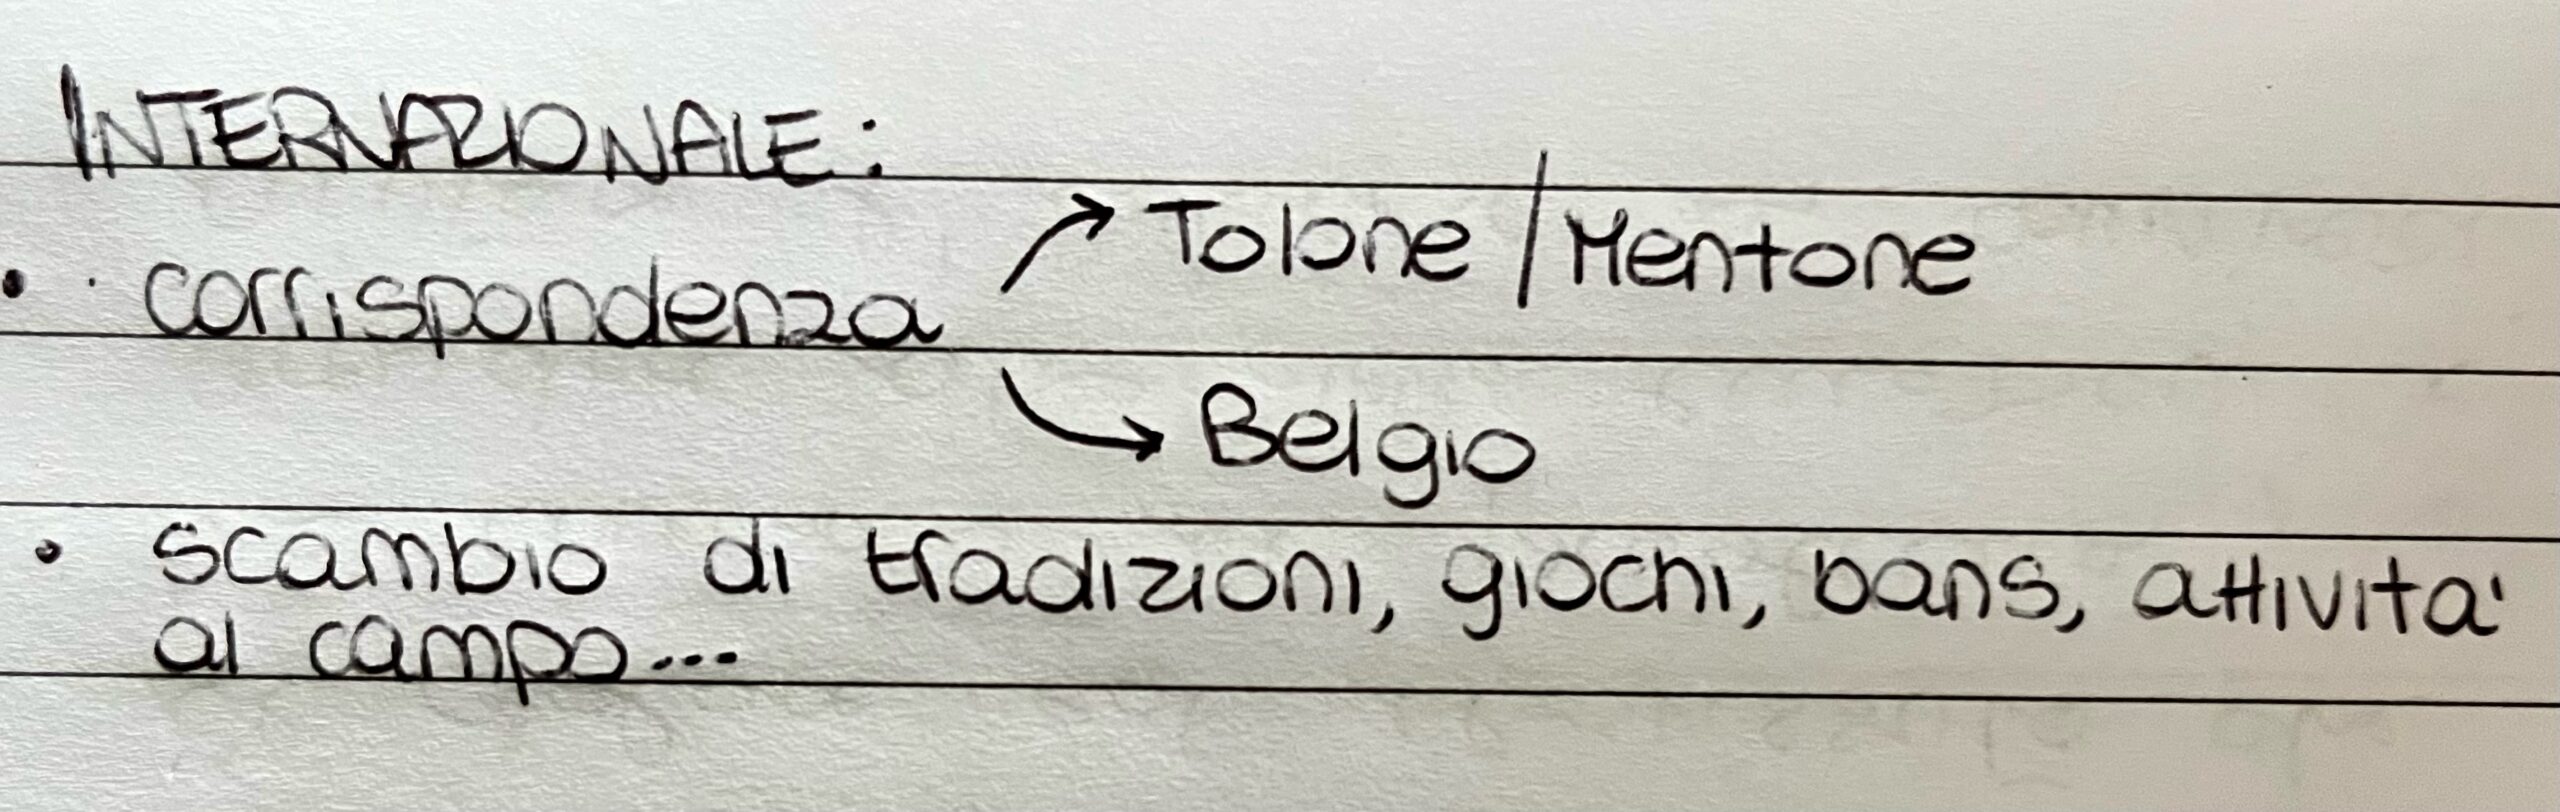 INTERNAZIONALE:
→ Tolone / Mentone
• corrispondenza
→ Belgio
• scambio di tradizioni, giochi, bans, attivita'
al campo...